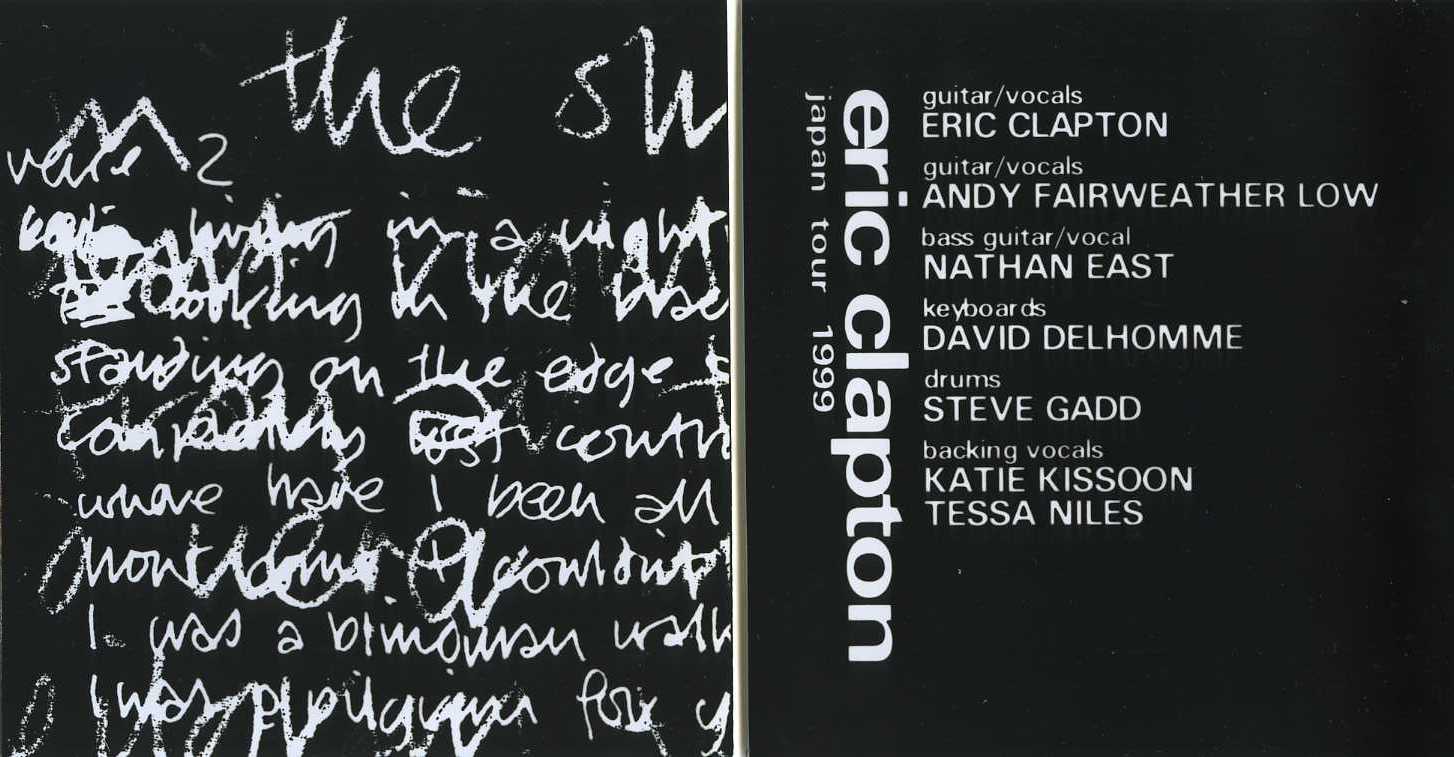 in the sh
verse 2
living in a night
looking in the base
standing on the edge
company contr
where have I been all
couldnt
I was a blindman walk
I was a pilgrim for
japan tour 1999
eric clapton
guitar/vocals
ERIC CLAPTON
guitar/vocals
ANDY FAIRWEATHER LOW
bass guitar/vocal
NATHAN EAST
keyboards
DAVID DELHOMME
drums
STEVE GADD
backing vocals
KATIE KISSOON
TESSA NILES